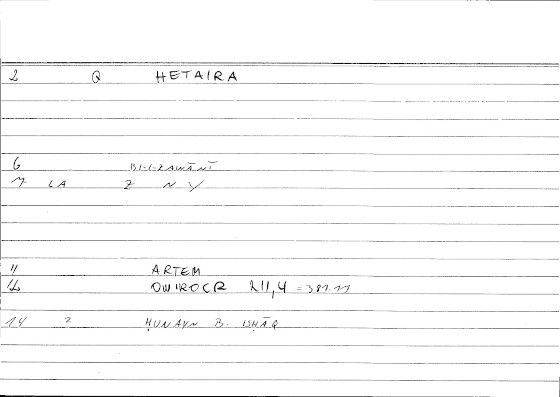 2 Q HETAIRA
6 BI-L-ZAWĀNĪ
7 LA Z N Y
11 ARTEM
12 OWIROCR 211,4 = 381.11
14 2 ḤUNAYN B. ISḤĀQ